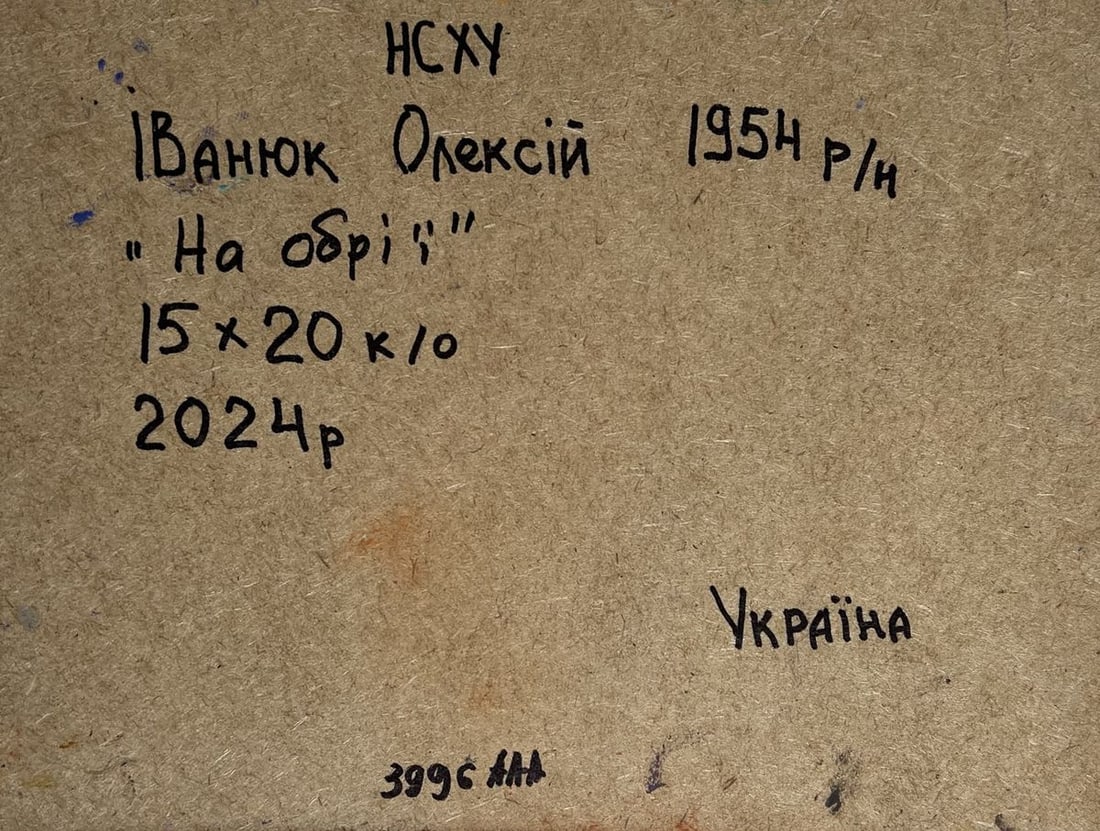 НСХУ
Іванюк Олексій 1954 р/н
"На обрії"
15 x 20 к/о
2024р
Україна
3996 ААА